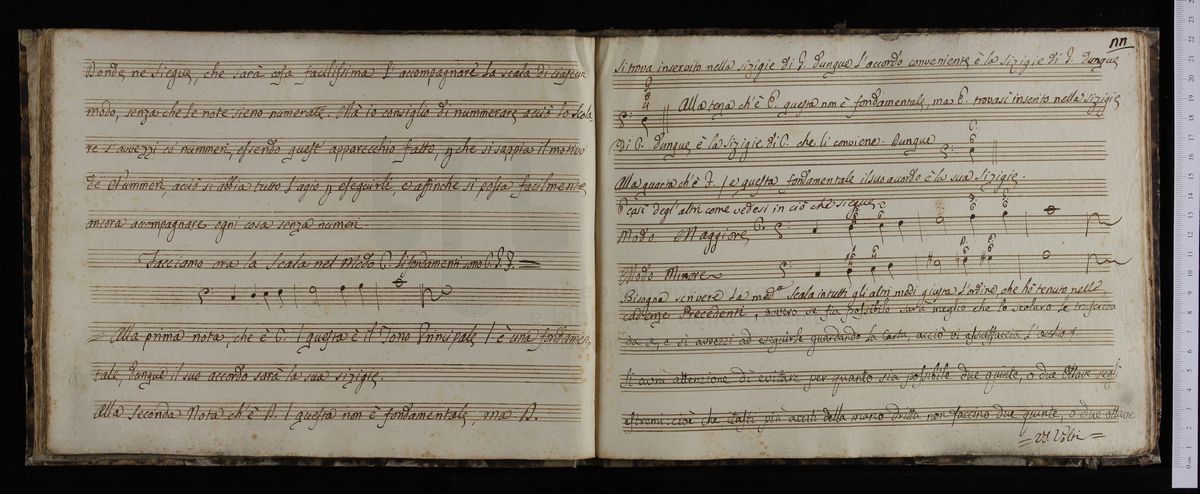 Donde ne siegue, che sarà cosa facilissima l'acompagnare la scala di ciascun
modo, senza che le note sieno numerate. Ma io consiglio di nummerare acciò lo scola-
re s'avvezzi co' nummeri, essendo quest'apparecchio fatto, che si sappia il motivo
de Nummeri, acciò si abbia tutto l'agio eseguirli e affinche si possa facilmente
ancora acompagnare ogni cosa senza numeri.
Facciamo ora la scala nel modo C. li fondamenti sono C. F. G.
Alla prima nota, che è C. | questa è il Tono Principale | è una fondamen-
tale, dunque il suo accordo sarà la sua sizigie.
Alla seconda Nota ch'è D. | questa non è fondamentale, ma D.
nn
si trova inserito nella sizigie di G. dunque l'accordo conveniente è la sizigie di G. dunque
Alla terza ch'è E. questa non è fondamentale, ma E. trovasi inserito nella sizigie
di C. dunque è la sizigie di C. che li conviene. Dunque
Alla quarta ch'è F. | e questa fondamentale il suo accordo è la sua sizigie.
E così degl'altri come vedesi in ciò che siegue
Modo Maggiore C.
Modo Minore
Bisogna scrivere la med.a scala in tutti gli altri modi giusta l'ordine che hò tenuto nelle
cadenze Precedenti, ovvero se sia possibile sarà meglio che lo scolaro le trasferisca
da se, e si avvezzi ad eseguirle guardando la carta, acciò vi assuefaccia l'occhio
Si avrà attenzione di evitare per quanto sia possibile due quinte, o due ottave negli
estremi: cioè che i tasti più acuti della mano dritta non faccino due quinte, o due ottave
= VS. Volti =